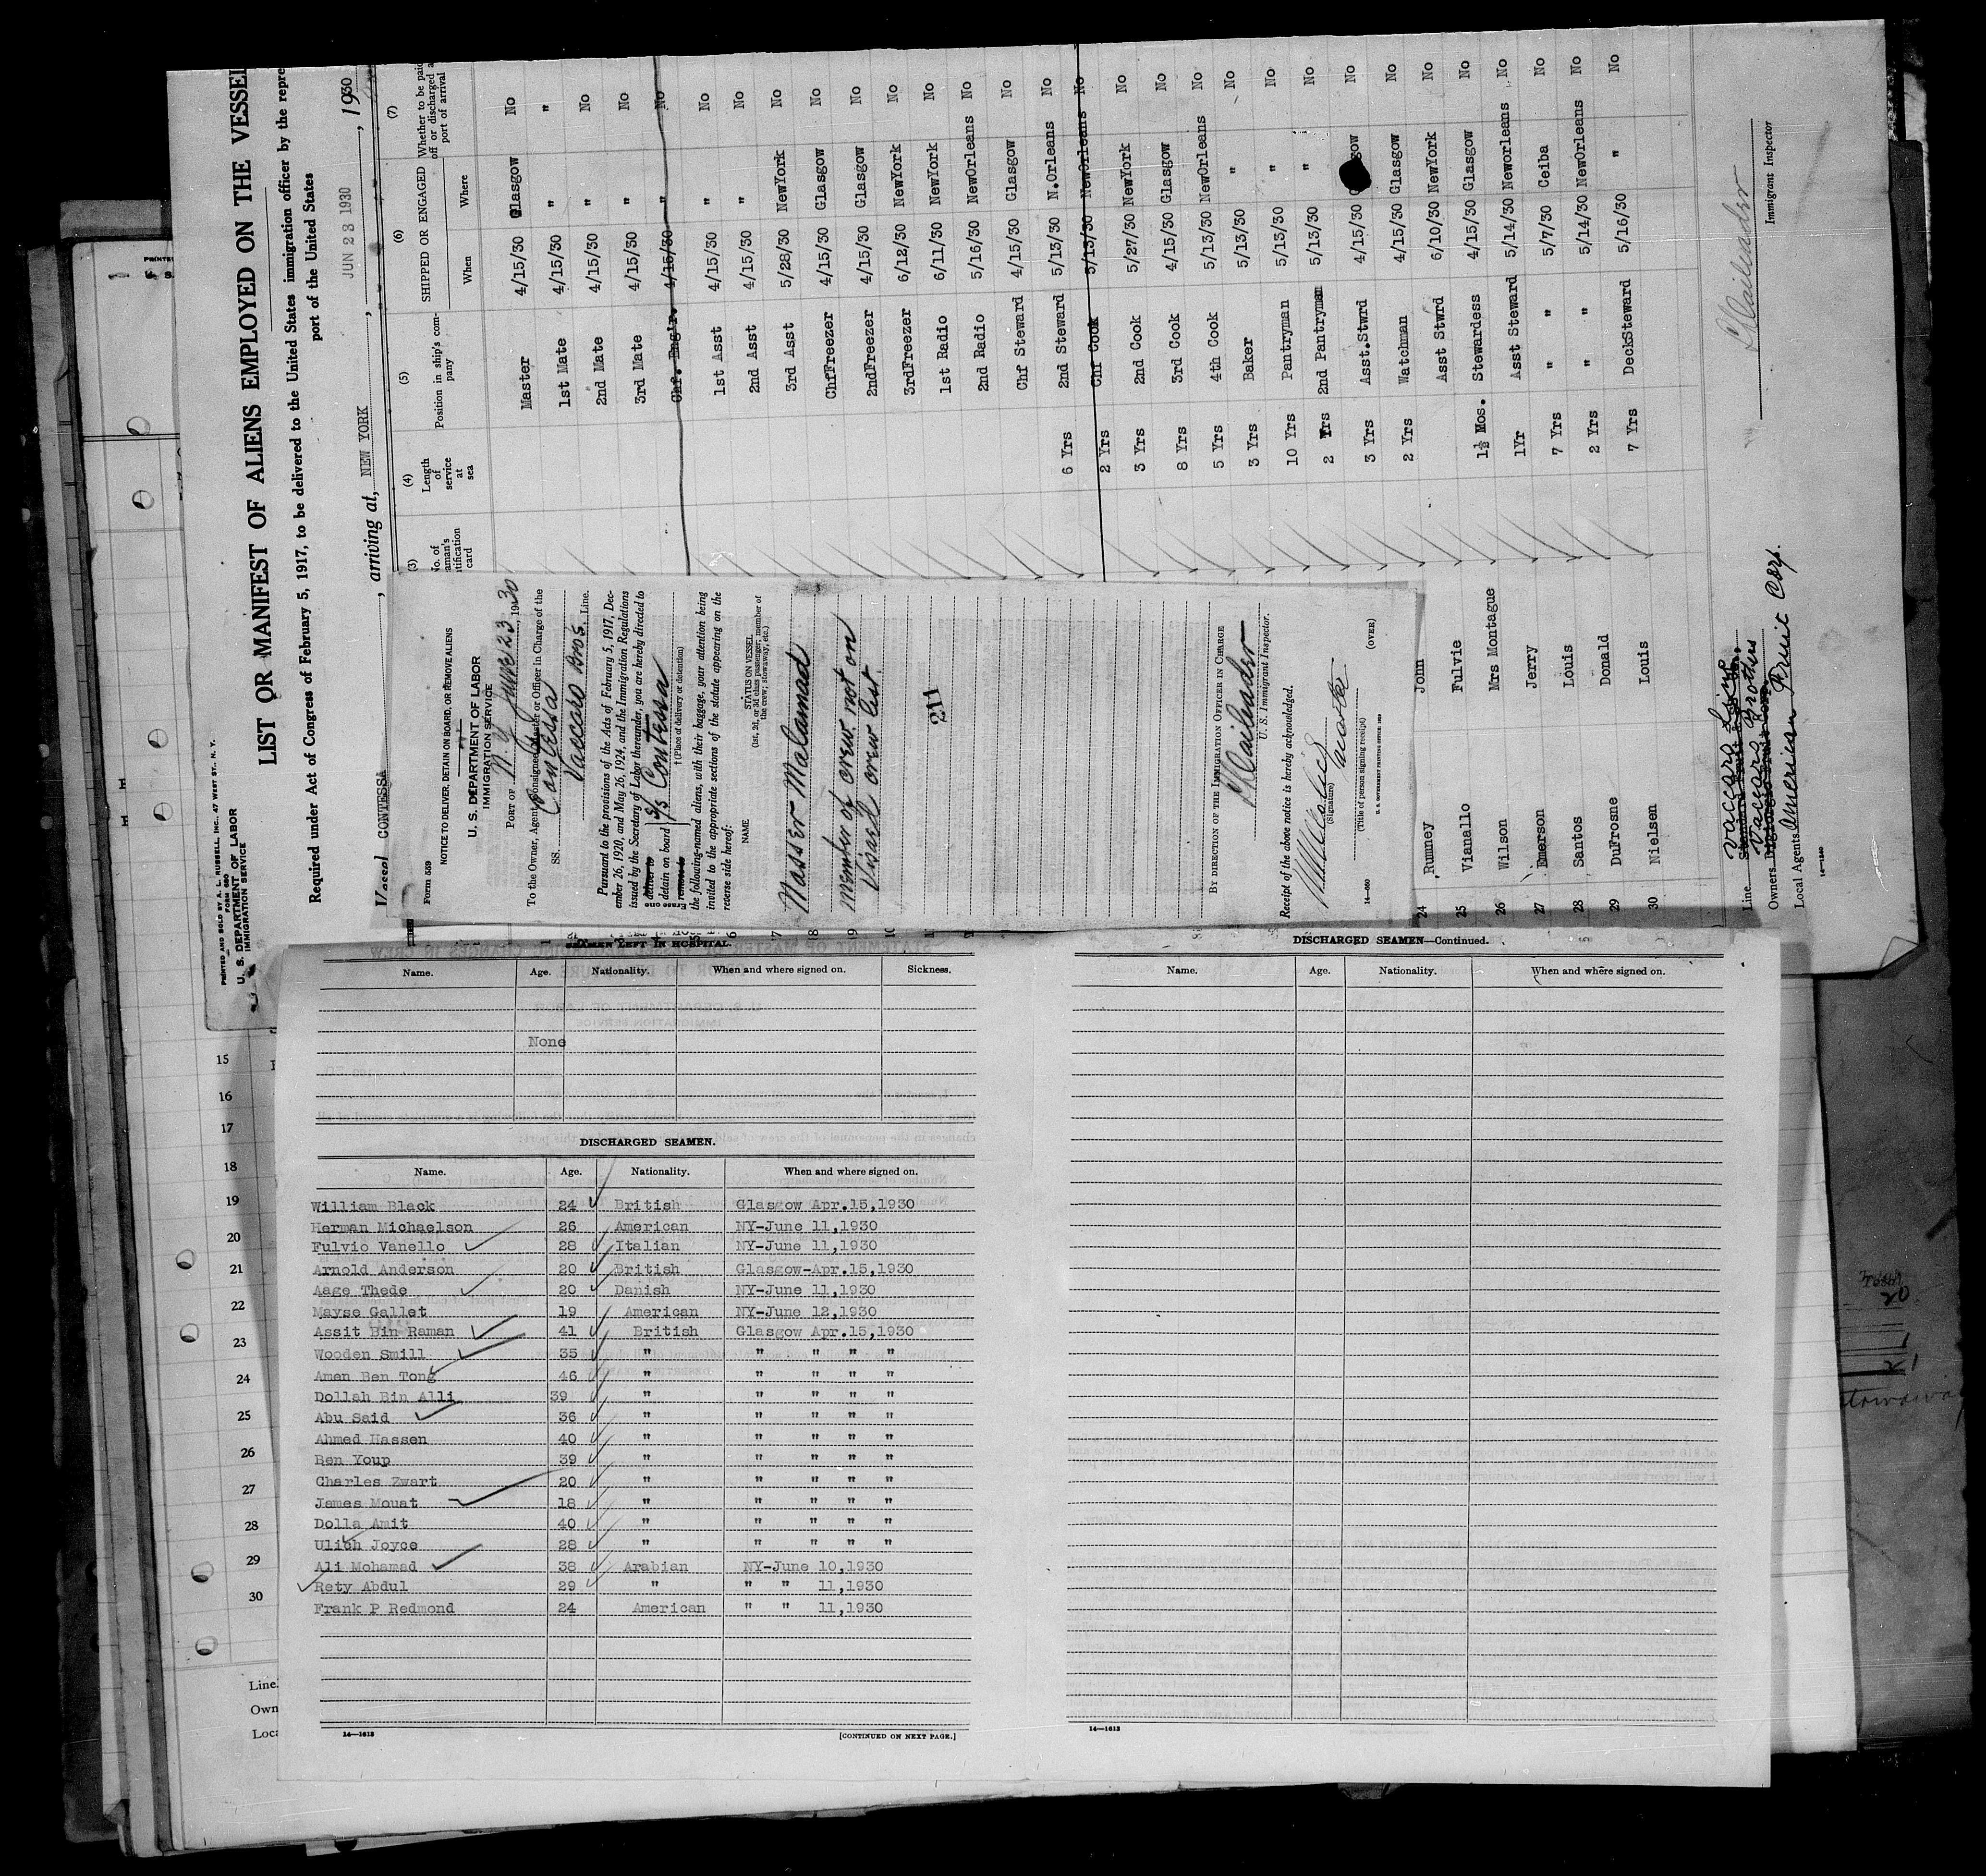 PRINTED AND SOLD BY A. L. RUSSELL, INC., 47 WEST ST., N. Y.
FORM 680
U. S. DEPARTMENT OF LABOR
IMMIGRATION SERVICE
LIST OR MANIFEST OF ALIENS EMPLOYED ON THE VESSEL
Required under Act of Congress of February 5, 1917, to be delivered to the United States immigration officer by the repre
port of the United States
Vessel CONTESSA, arriving at, NEW YORK, JUN 23 1930, 1930
(3) (4) (5) (6) (7)
No. of
Length of service at sea
Position in ship's company
SHIPPED OR ENGAGED
When Where
Whether to be paid off or discharged at port of arrival
Master 4/15/30 Glasgow No
1st Mate 4/15/30 " "
2nd Mate 4/15/30 " No
3rd Mate 4/15/30 " No
Chf. Eng'r. 4/15/30 " No
1st Asst 4/15/30 " No
2nd Asst 4/15/30 " No
3rd Asst 5/28/30 NewYork No
ChfFreezer 4/15/30 Glasgow No
2ndFreezer 4/15/30 Glasgow No
3rdFreezer 6/12/30 NewYork No
1st Radio 6/11/30 NewYork No
2nd Radio 5/16/30 NewOrleans No
Chf Steward 4/15/30 Glasgow No
6 Yrs 2nd Steward 5/13/30 N.Orleans No
2 Yrs Chf Cook 5/13/30 NewOrleans No
3 Yrs 2nd Cook 5/27/30 NewYork No
8 Yrs 3rd Cook 4/15/30 Glasgow No
5 Yrs 4th Cook 5/13/30 NewOrleans No
3 Yrs Baker 5/13/30 " No
10 Yrs Pantryman 5/13/30 " No
2 Yrs 2nd Pantryman 5/13/30 " No
3 Yrs Asst.Stwrd 4/15/30 No
2 Yrs Watchman 4/15/30 Glasgow No
24 Rumney John Asst Stwrd 6/10/30 NewYork No
25 Vianallo Fulvie 1½ Mos. Stewardess 4/15/30 Glasgow No
26 Wilson Mrs Montague 1Yr Asst Steward 5/14/30 Neworleans No
27 Emerson Jerry 7 Yrs " 5/7/30 Ceiba No
28 Santos Louis 2 Yrs " 5/14/30 NewOrleans No
29 DuFrosne Donald 7 Yrs DeckSteward 5/16/30 " No
30 Nielsen Louis
Line
Owners Vaccaro Brothers
Local Agents American Fruit Corp.
14—1240
Immigrant Inspector
Form 559
NOTICE TO DELIVER, DETAIN ON BOARD, OR REMOVE ALIENS
U. S. DEPARTMENT OF LABOR
IMMIGRATION SERVICE
PORT OF N. Y. June 23, 1930
To the Owner, Agent, Consignee, Master or Officer in Charge of the
SS. Contessa Vaccaro Bros. Line.
Pursuant to the provisions of the Acts of February 5, 1917, Dec-
ember 26, 1920, and May 26, 1924, and the Immigration Regulations
issued by the Secretary of Labor thereunder, you are hereby directed to
deliver to
detain on board
remove to
S/S Contessa
†(Place of delivery or detention)
the following-named aliens, with their baggage, your attention being
invited to the appropriate sections of the statute appearing on the
reverse side hereof:
NAME
STATUS ON VESSEL
(1st, 2d, or 3d class passenger; member of the crew; stowaway, etc.)
Nasser Malamad
member of crew not on
Visaed crew list.
211
BY DIRECTION OF THE IMMIGRATION OFFICER IN CHARGE
U. S. Immigrant Inspector.
Receipt of the above notice is hereby acknowledged.
(Signature)
(Title of person signing receipt)
14—660
U. S. GOVERNMENT PRINTING OFFICE: 1929
(OVER)
SEAMEN LEFT IN HOSPITAL.
Name. Age. Nationality. When and where signed on. Sickness.
None
DISCHARGED SEAMEN.
Name. Age. Nationality. When and where signed on.
William Black 24 British Glasgow Apr.15,1930
Herman Michaelson 26 American NY-June 11,1930
Fulvio Vanello 28 Italian NY-June 11,1930
Arnold Anderson 20 British Glasgow-Apr.15,1930
Aage Thede 20 Danish NY-June 11,1930
Mayse Gallet 19 American NY-June 12,1930
Assit Bin Raman 41 British Glasgow Apr.15,1930
Wooden Smill 35 " " " " "
Amen Ben Tong 46 " " " " "
Dollah Bin Alli 39 " " " " "
Abu Said 36 " " " " "
Ahmed Hassen 40 " " " " "
Ben Youp 39 " " " " "
Charles Zwart 20 " " " " "
James Mouat 18 " " " " "
Dolla Amit 40 " " " " "
Ulich Joyce 28 " " " " "
Ali Mohamad 38 Arabian NY-June 10,1930
Rety Abdul 29 " " " 11,1930
Frank P Redmond 24 American " " 11,1930
14—1613
[CONTINUED ON NEXT PAGE.]
DISCHARGED SEAMEN—Continued.
Name. Age. Nationality. When and where signed on.
14—1613
15
16
17
18
19
20
21
22
23
24
25
26
27
28
29
30
Line.
Own
Loca
20
21